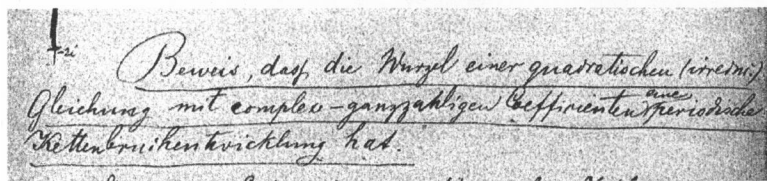 Beweis, dass die Wurzel einer quadratischen (irredu.)
Gleichung mit complex-ganzzahligen Coefficienten eine periodische
Kettenbruchentwicklung hat.